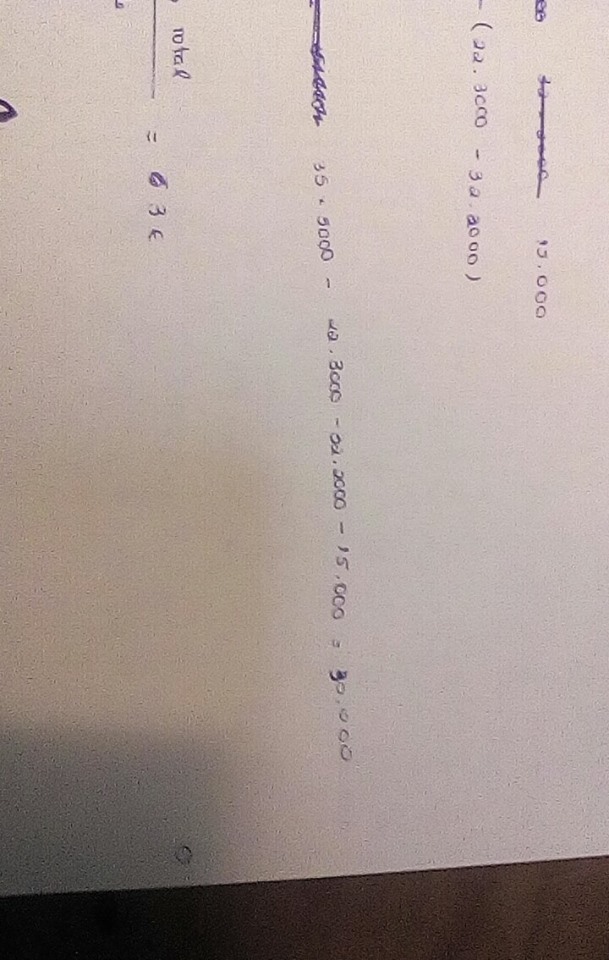 15.000
- (22.3000 - 32.2000)
35 . 5000 - 22.3000 - 32.2000 - 15.000 = 30.000
total
= 63€